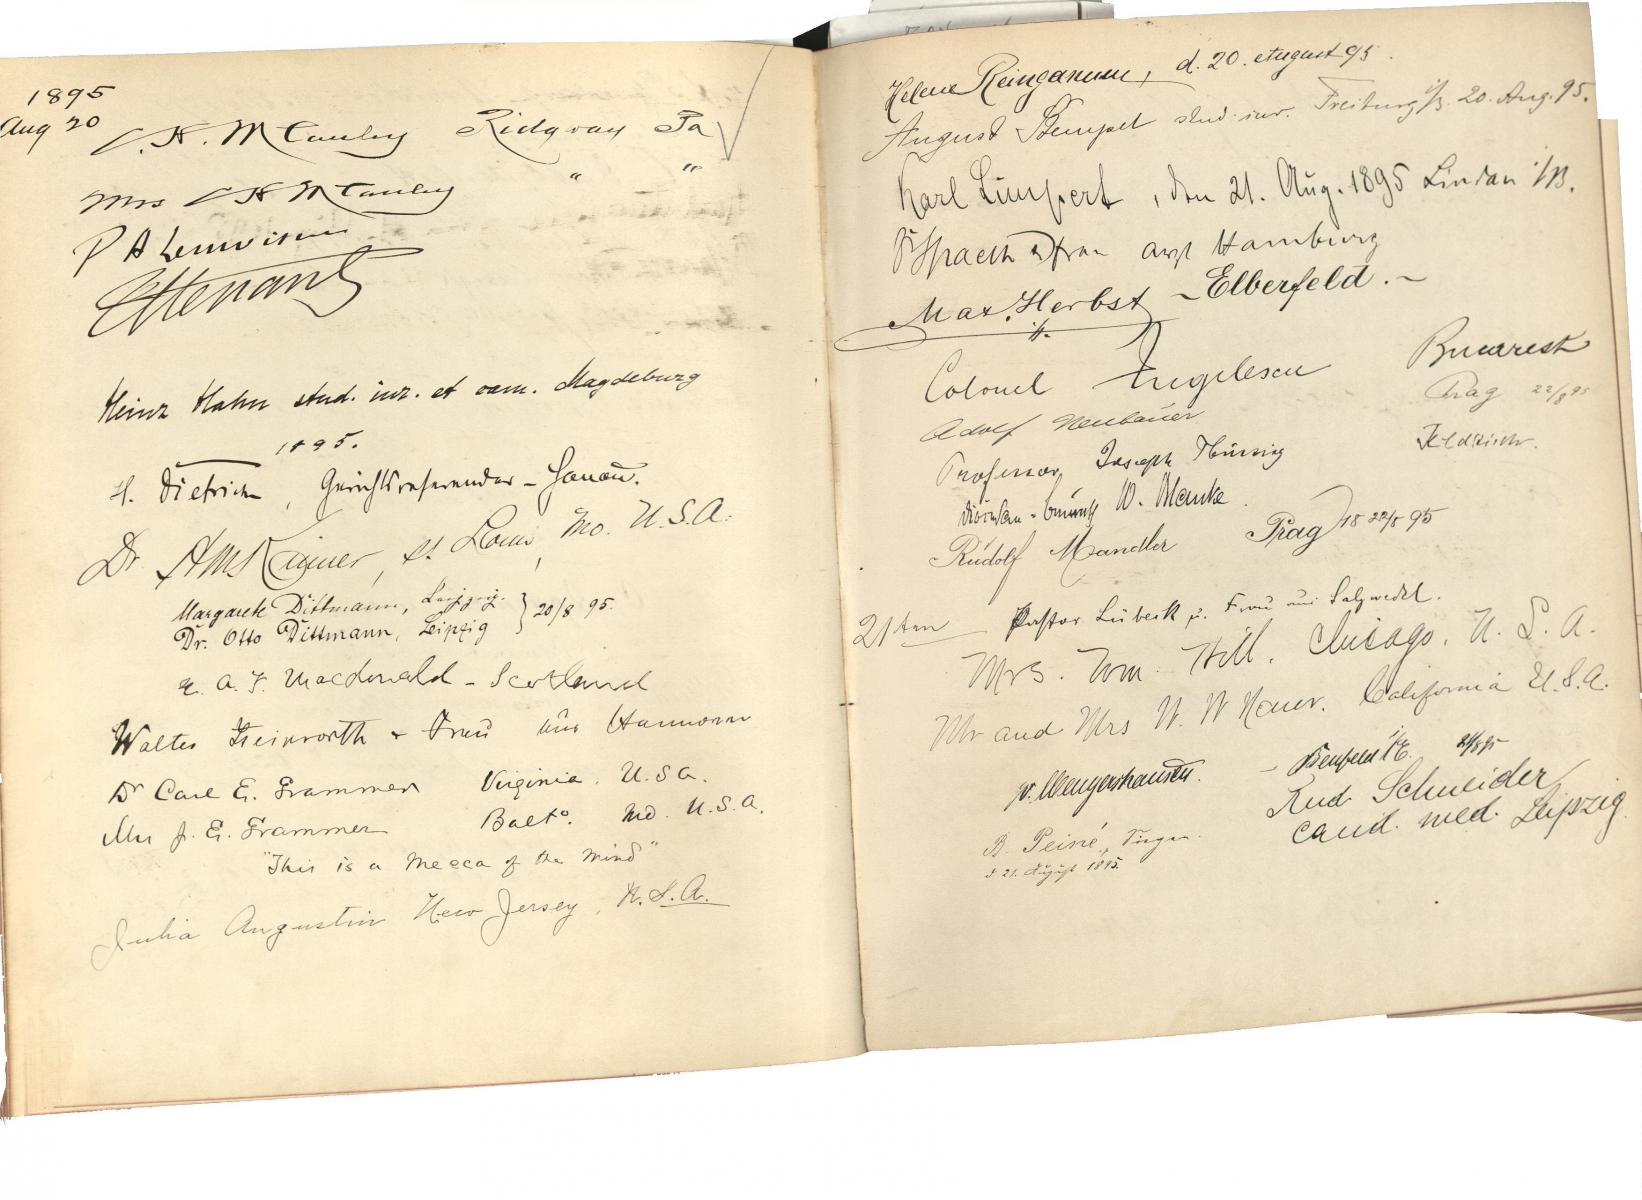 1895
Aug 20
C. H. McCauley Ridgway Pa
Mrs C H McCauley " "
P A
Heinz Hahn stud. iur. et cam. Magdeburg
1895.
H. Dietrich, Gerichtsreferendar - Hanau.
Dr. St Louis, Mo. U.S.A.
Margarete Dittmann, Leipzig.
Dr. Otto Dittmann, Leipzig } 20/8 95.
A. F. Macdonald - Scotland
Walter & Frau aus Hannover
Dr Carl E. Grammer Virginia. U.S.A.
Mrs J. E. Grammer Balto. Md. U.S.A.
"This is a Mecca of the Mind"
Julia Augustin New Jersey, U.S.A.
Helene Reinganum, d. 20. August 95.
August Stempel stud. iur. Freiburg i/B. 20. Aug. 95.
Karl Limpert, den 21. Aug. 1895 Lindau i/B.
Spaeth u Frau Hamburg
Max. Herbst - Elberfeld. -
Colonel Angelescu Bucarest
Adolf Neubauer Prag 22/8 95
Professor Joseph Feldkirch.
W. Manke.
Rudolf Mandler Prag 95
21ten Pastor Lübeck u. Frau aus Salzwedel.
Mrs. Wm. Hill. Chicago. U. S. A.
Mr and Mrs W. W. California U.S.A.
v. Mengershausen. - Benfeld i/E. 21/8 95
Rud. Schneider
cand. med. Leipzig.
B. Peiné,
d 21. August 1895.